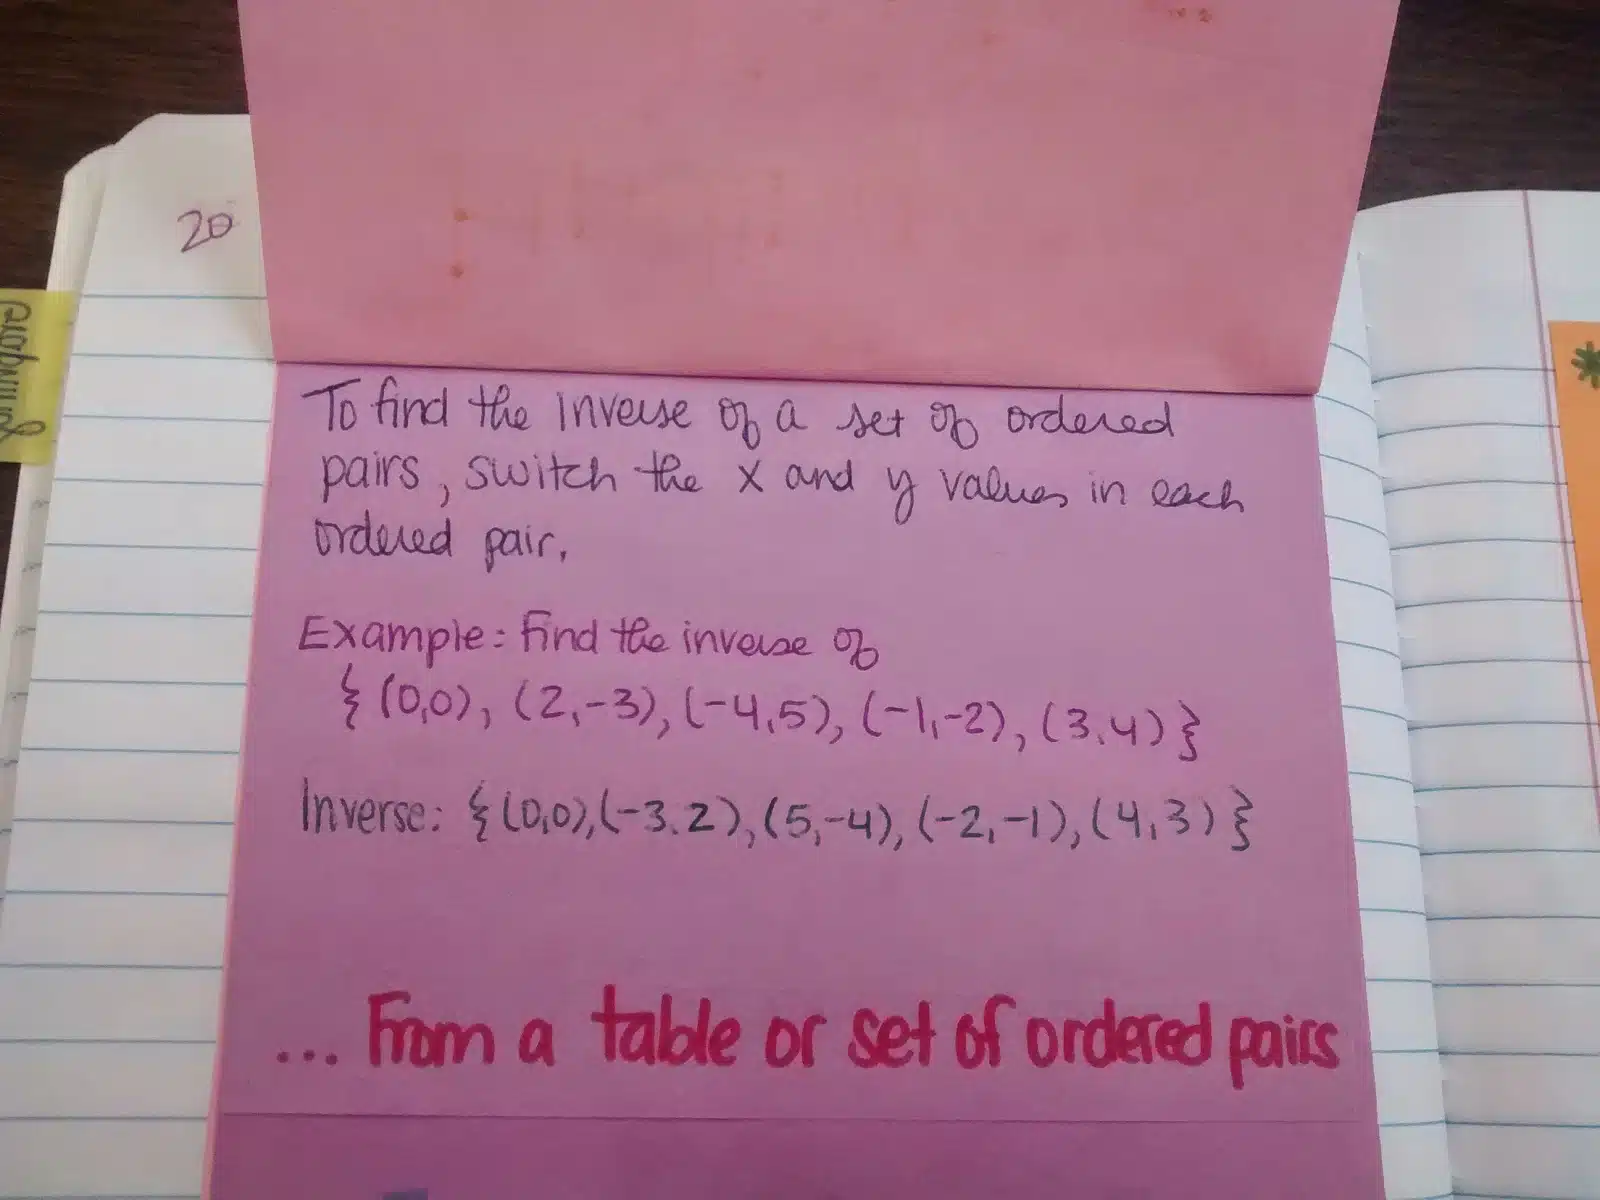 20
To find the inverse of a set of ordered
pairs, switch the x and y values in each
ordered pair.
Example: Find the inverse of
{(0,0), (2,-3), (-4,5), (-1,-2), (3,4)}
Inverse: {(0,0),(-3,2),(5,-4),(-2,-1),(4,3)}
... From a table or set of ordered pairs